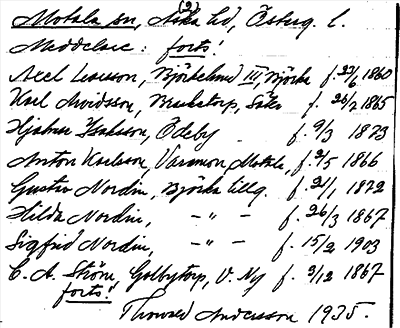 (2)
Motala sn, Aska hd, Österg. l.
Meddelare: forts!
Axel Larsson, Björkelund III, Björka f. 23/6 1860
Karl Arvidsson, Bruketorp, f. 26/2 1865
Hjalmar Isaksson, Ödeby f. 9/3 1873
Anton Karlsson, Varamon, Motala, f. 9/5 1866
Gustav Nordin, Björka tillg. f. 21/1 1872
Hilda Nordin, – " – f. 26/3 1867
Sigfrid Nordin, – " – f. 15/2 1903
C. A. Ström, Golbytorp, V. Ny f. 3/12 1867
forts!!
Thorvald Andersson 1935.